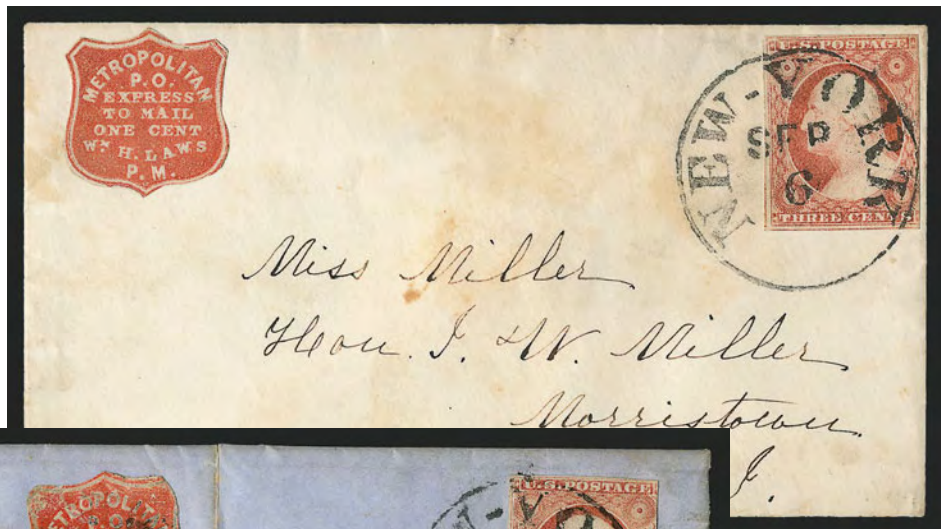 METROPOLITAN
P.O.
EXPRESS
TO MAIL
ONE CENT
Wm H. LAWS
P.M.
U.S. POSTAGE
NEW-YORK
SEP
6
THREE CENTS
Miss Miller
Hon. J. W. Miller
Morristown
J.
METROPOLITAN
P.O.
U.S. POSTAGE